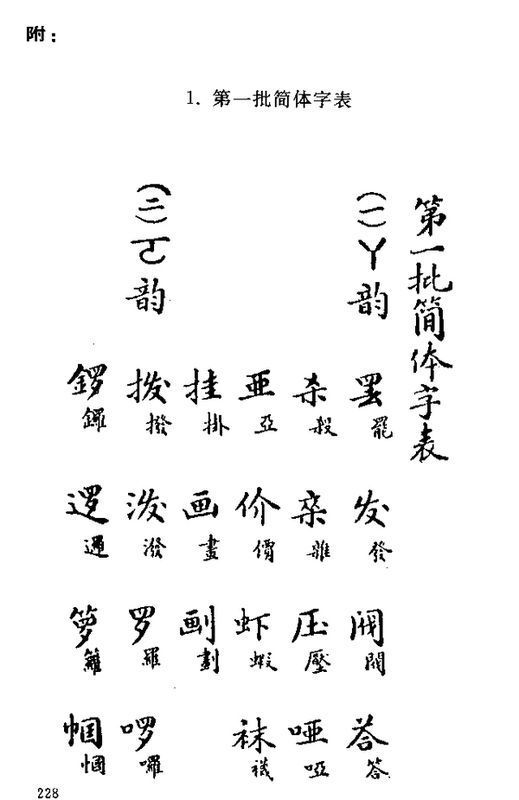 附：
1. 第一批简体字表
第一批简体字表
（一）ㄚ韵
罢 罷 发 發 阀 閥 荅 答
杀 殺 杂 雜 压 壓 哑 啞
亜 亞 价 價 虾 蝦 袜 襪
挂 掛 画 畫 㓰 劃
（二）ㄛ韵
拨 撥 泼 潑 罗 羅 啰 囉
锣 鑼 逻 邏 箩 籮 帼 幗
228